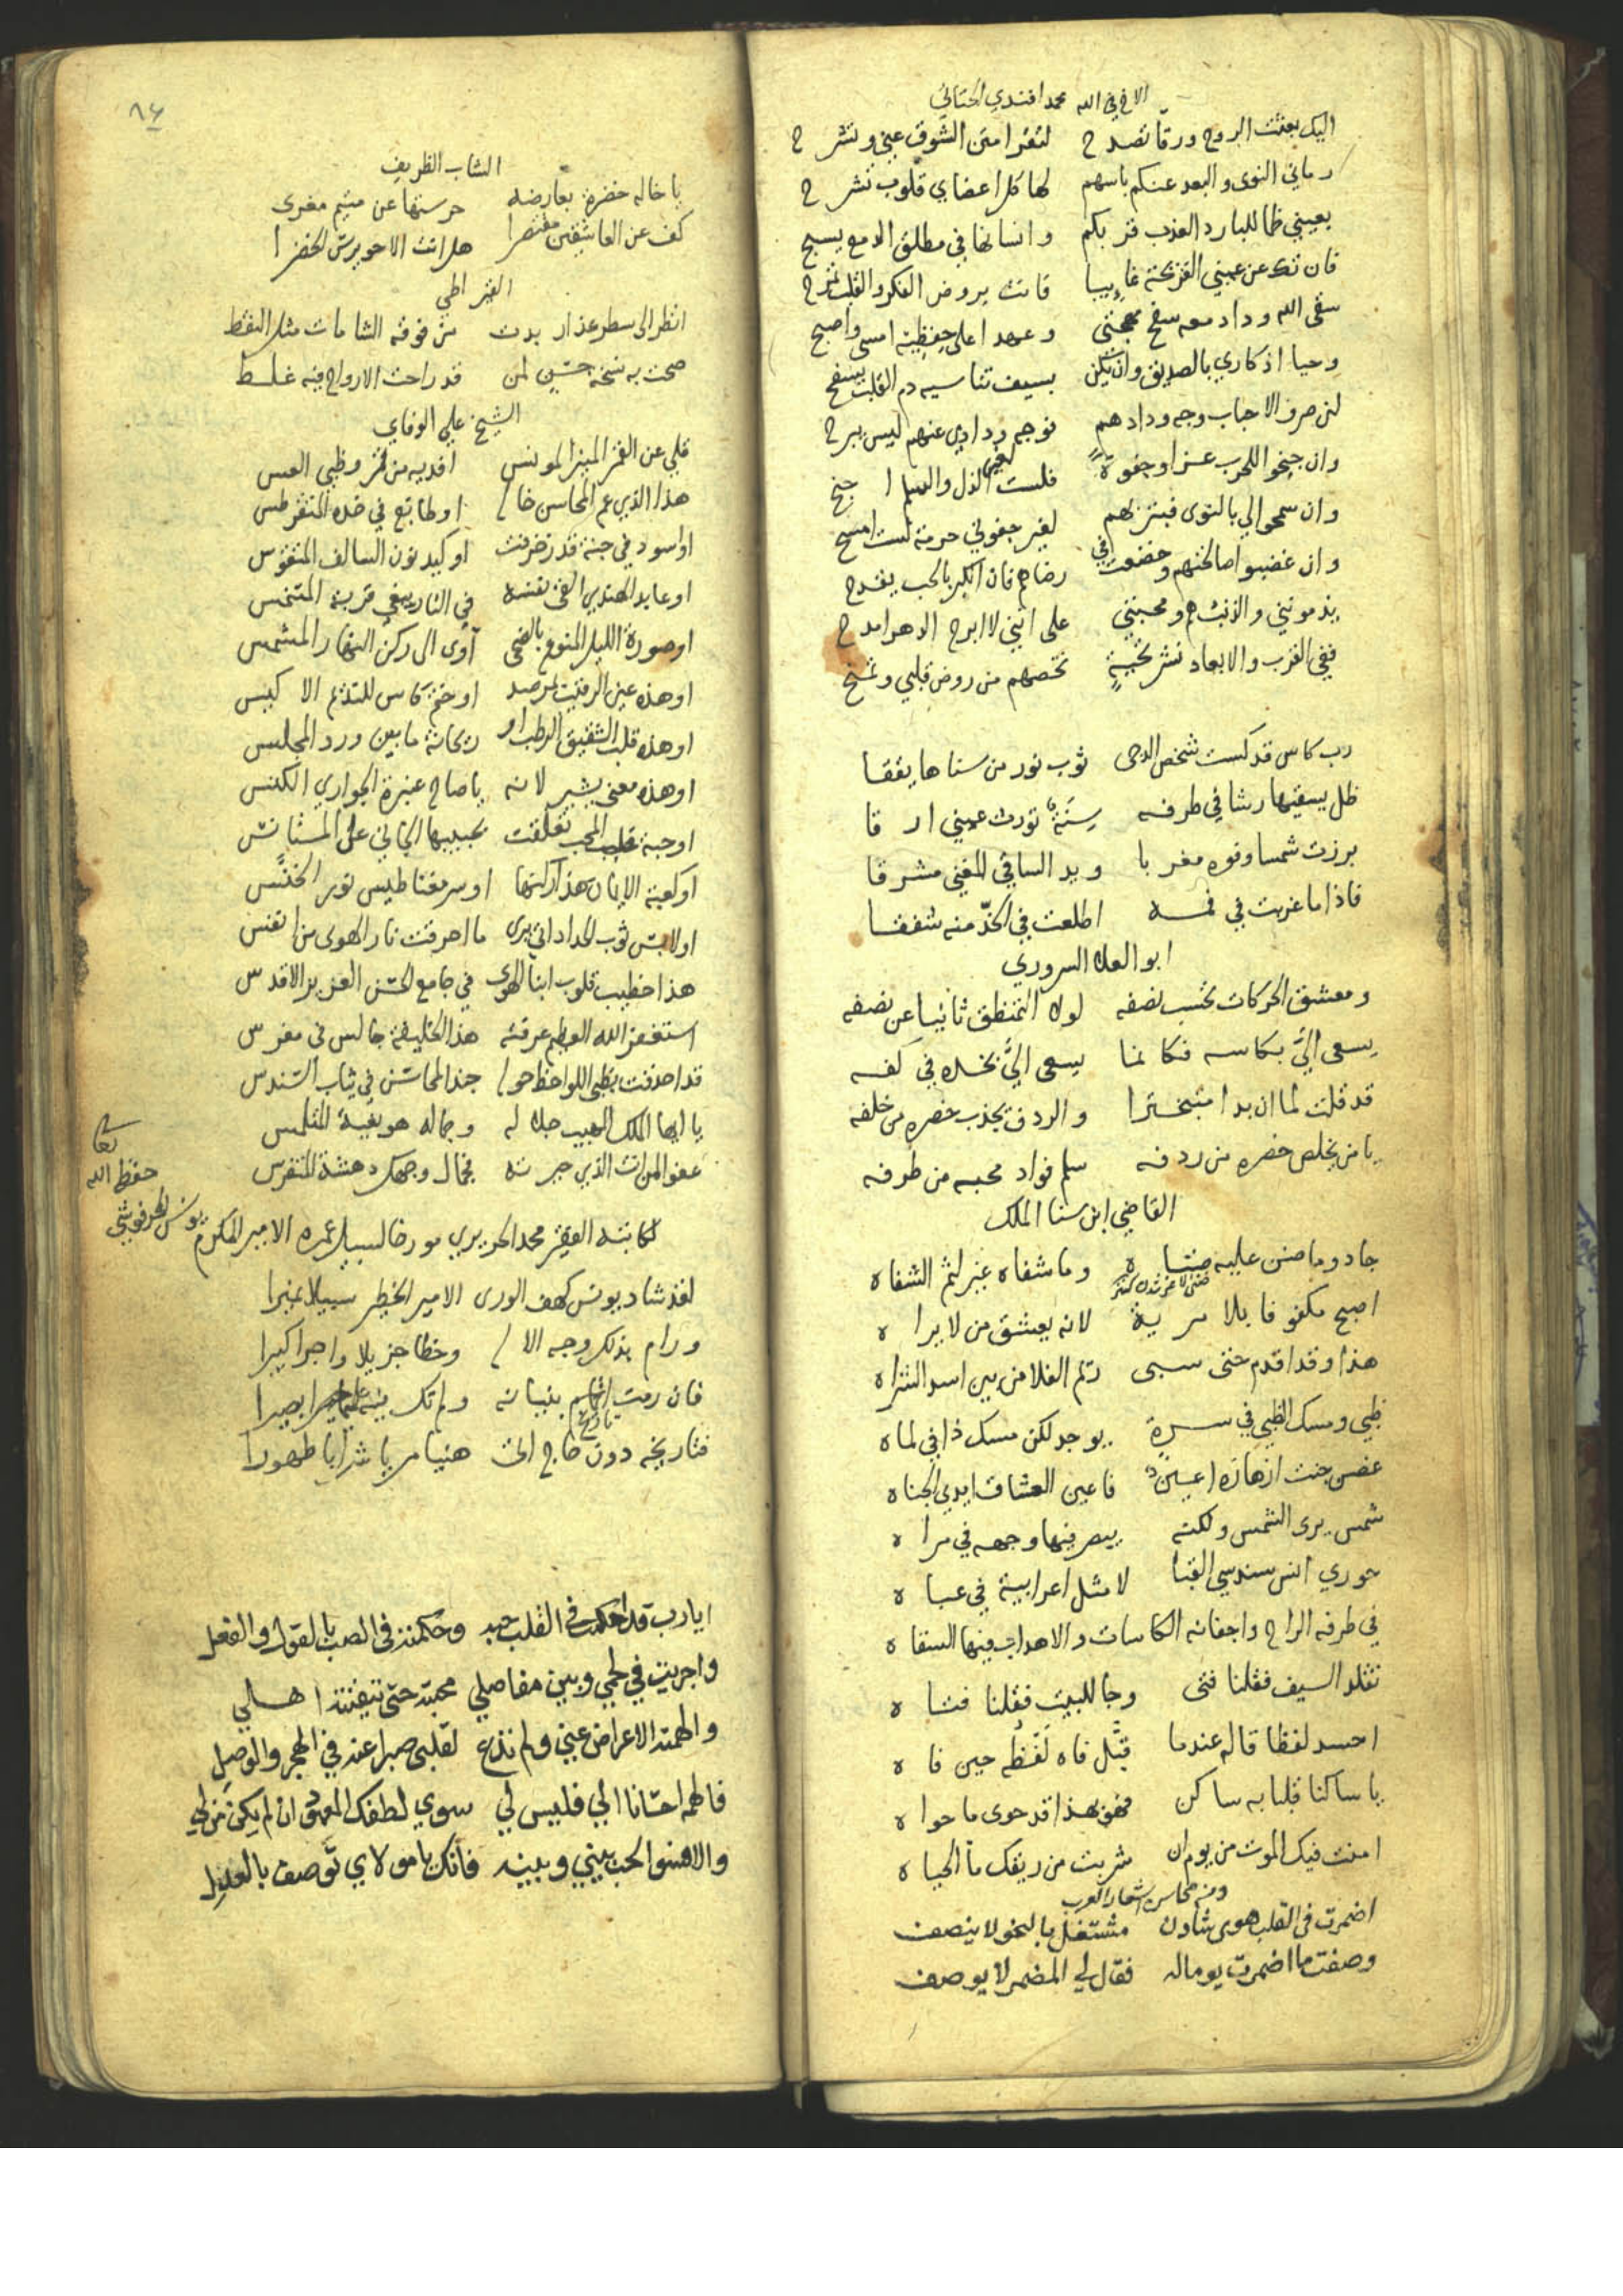 الاخ في الله محمد افندي الحتاتي
اليك بعثت الروح ورقا تصدح لتقرا متن الشوق عني وتشرح
رماني النوى والبعد عنكم باسهم لها كل اعضاي قلوب تشرح
بعيني ظما للبارد العذب قربكم وانسانها في مطلق الدمع يسبح
فان تك عن عيني القريحة غايبا فانت بروض الفكر والقلب تمرح
سقى الله وداد معه سفح مهجتي وعهدا على حفظيه امسي واصبح
وحيا اذكاري بالصديق وان يكن بسيف تناسيه دم القلب يسفح
لئن صرف الاحباب وجه ودادهم فوجه ودادي عنهم ليس يبرح
وان جنحوا للحرب عزا وجفوة فلست لغير الذل والسلم اجنح
وان سمحوا لي بالنوى فبتربهم لغير جفوني حرمة لست امسح
وان غضبوا صالحتهم وخضعت في رضاهم فان الكبر بالحب يقدح
يذمونني والذنب هم ومحبتي على انني لا ابرح الدهر امدح
ففي القرب والابعاد نشر تحية تخصهم من روض قلبي وتمنح
رب كاس قد كست شخص الدجى ثوب نور من سناها يققا
ظل يسقيها رشا في طرفه سنة تورث عيني ارقا
برزت شمسا وفوه مغربا ويد الساقي المغني مشرقا
فاذا ما غربت في فمه اطلعت في الخد منه شفقا
ابو العلا السروري
ومعشق الحركات تحسب نصفه لولا التمنطق ثانيا عن نصفه
يسعى الي بكاسه فكانما يسعى الي بخده في كفه
قد قلت لما ان بدا متبخترا والردف يجذب خصره من خلفه
يا من يخلص خصره من ردفه سلم فواد محبه من طرفه
القاضي ابن سنا الملك
جاد وما ضن عليه ضناه وما شفاه غير لثم الشفاه
اصبح مكفوفا بلا مرية لانه يعشق من لا يراه
هذا وقد اقدم حتى سبى رئم الفلا من بين اسد الشراه
ظبي ومسك الظبي في سرة يوجد لكن مسك ذا في لماه
غصن جنت ازهاره اعين فاعين العشاق ايدي الجناه
شمس يرى الشمس ولكنه يبصر فيها وجهه في مراه
حوري انس سندسي القبا لا مثل اعرابية في عباه
في طرفه الراح واجفانه الكاسات والاهداب فيها السقاه
تقلد السيف فقلنا فتى وجا للبيت فقلنا فتاه
احسد لفظا قاله عندما قبل فاه لفظه حين فاه
يا ساكنا قلبا به ساكن فهو بهذا قد حوى ما حواه
امنت فيك الموت من يوم ان شربت من ريقك ما الحياه
ومن محاسن اشعار العرب
اضمرت في القلب هوى شادن مشتغل بالنحو لا ينصف
وصفت ما اضمرت يوما له فقال لي المضمر لا يوصف
٨٤
الشاب الظريف
يا خاله خضرة بعارضه حرستها عن متيم مغرى
كف عن العاشقين مقتصرا هل انت الا حويرس الخضرا
القيراطي
انظر الى سطر عذار بدت من فوقه الشامات مثل النقط
صحت به نسخة حسن لمن قد راحت الارواح فيه غلط
الشيخ علي الوفاي
قلي عن القمر المنير المونس افديه من قمر وظبي العس
هذا الذي عم المحاسن خال او طابع في خده المتقرطس
او اسود في جنة قد زخرفت او كيد نون السالف المتقوس
او عابد الهندي القى نفسه في النار يبغي قربة المتنجس
او صورة الليل المنوع بالضحى آوى الى ركن النهار المشمس
او هذه عين الرقيب لمرصد او ختم كاس للنديم الاكيس
او هذه قلب الشقيق الرطب او ريحانة ما بين ورد المجلس
او هذه معنى يشير لانه يا صاح عنبرة الجواري الكنس
او حبة قلب المحب تعلقت بحبيبها الجاني على المستانس
او كعبة الايمان هذا ركنها او سر مغناطيس نور الخنس
او لابس ثوب الحداد اتي يرى ما احرقت نار الهوى من انفس
هذا خطيب قلوب ابنا الهوى في جامع الحسن العزيز الاقدس
استغفر الله العظيم عرفته هذا الخليفة جالس في مغرس
قد احدقت بظبى اللواحظ حول جند المحاسن في ثياب السندس
يا ايها الملك المهيب جلاله وجماله هو بغية المتلمس
عفوا لمن انت الذي حيرته فجمال وجهك دهشة المتفرس
لكاتبه الفقير محمد الحريري مورخا لسبيل عمره الامير المكرم يونس الحرفوشي
حفظه الله
تعالى
لقد شاد يونس كهف الورى الامير الخطير سبيلا غبرا
ورام بذلك وجه الال وحظا جزيلا واجرا كبيرا
فان رمت اتمام بنيانه ولم تك بصيرا
تاريخ
فتاريخه دون حاج انت هنيا مريا شرابا طهورا
ايا رب قد احكمت في القلب حبه وحكمته في الصب بالقول والفعل
واجريت في لحمي وبين مفاصلي محبته حتى تيقنته اهلي
والهمته الاعراض عني ولم تدع لقلبي صبرا عنه في الهجر والوصل
فالهمه احسانا الي فليس لي سوى لطفك المعهود ان لم يكن من لي
والا فسو الحب بيني وبينه فانك يا مولاي توصف بالعدل